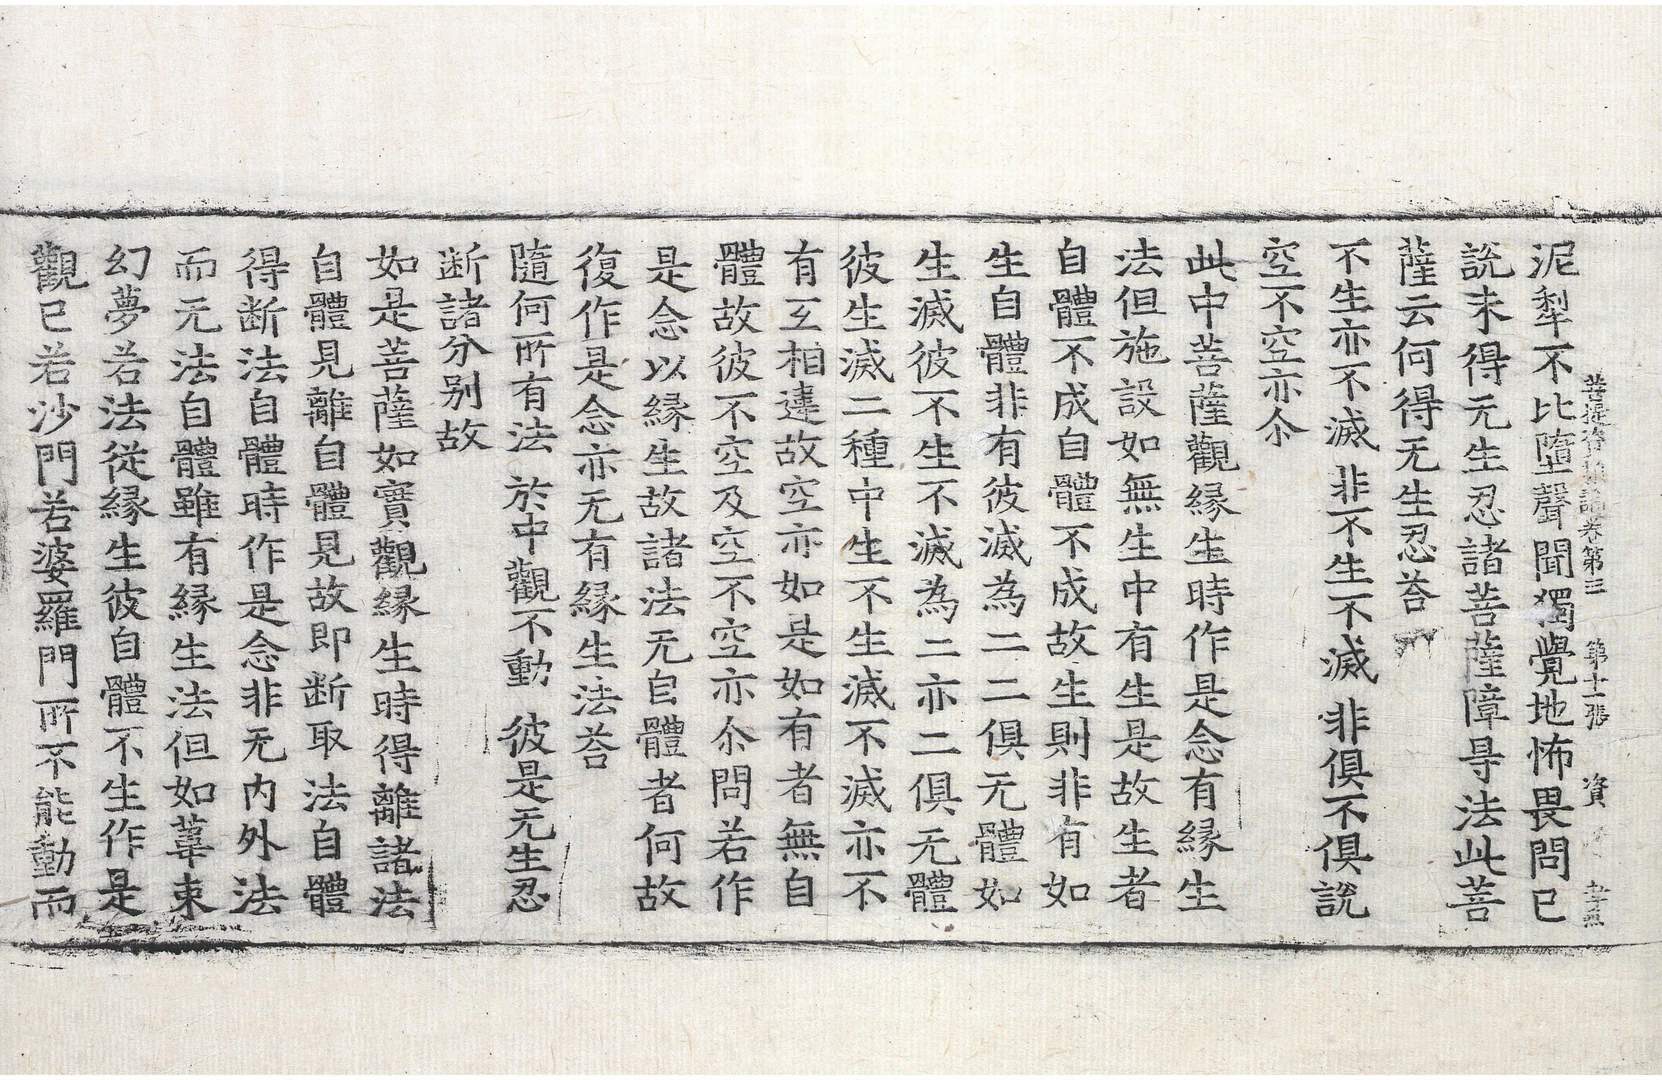 菩提資糧論卷第三 第十一張 資
泥犁不比墮聲聞獨覺地怖畏問已
說未得无生忍諸菩薩障㝵法此菩
薩云何得无生忍荅
不生亦不滅 非不生不滅 非俱不俱說
空不空亦尒
此中菩薩觀緣生時作是念有緣生
法但施設如無生中有生是故生者
自體不成自體不成故生則非有如
生自體非有彼滅為二二俱无體如
生滅彼不生不滅為二亦二俱无體
彼生滅二種中生不生滅不滅亦不
有互相違故空亦如是如有者無自
體故彼不空及空不空亦尒問若作
是念以緣生故諸法无自體者何故
復作是念亦无有緣生法荅
隨何所有法 於中觀不動 彼是无生忍
断諸分别故
如是菩薩如實觀緣生時得離諸法
自體見離自體見故即断取法自體
得断法自體時作是念非无內外法
而无法自體雖有緣生法但如葦束
幻夢若法從緣生彼自體不生作是
觀已若沙門若婆羅門所不能動而